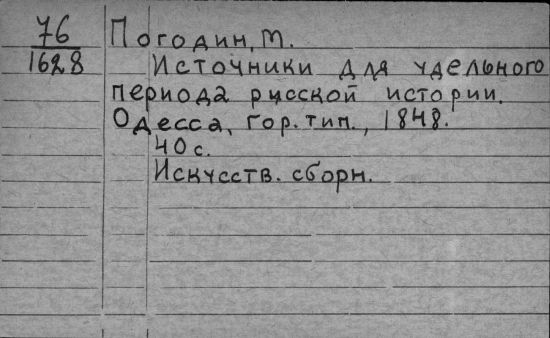 76
1628
Погодин, М.
Источники для удельного
периода русской истории.
Одесса, Гор. тип., 1848.
40 с.
Искусств. сборн.